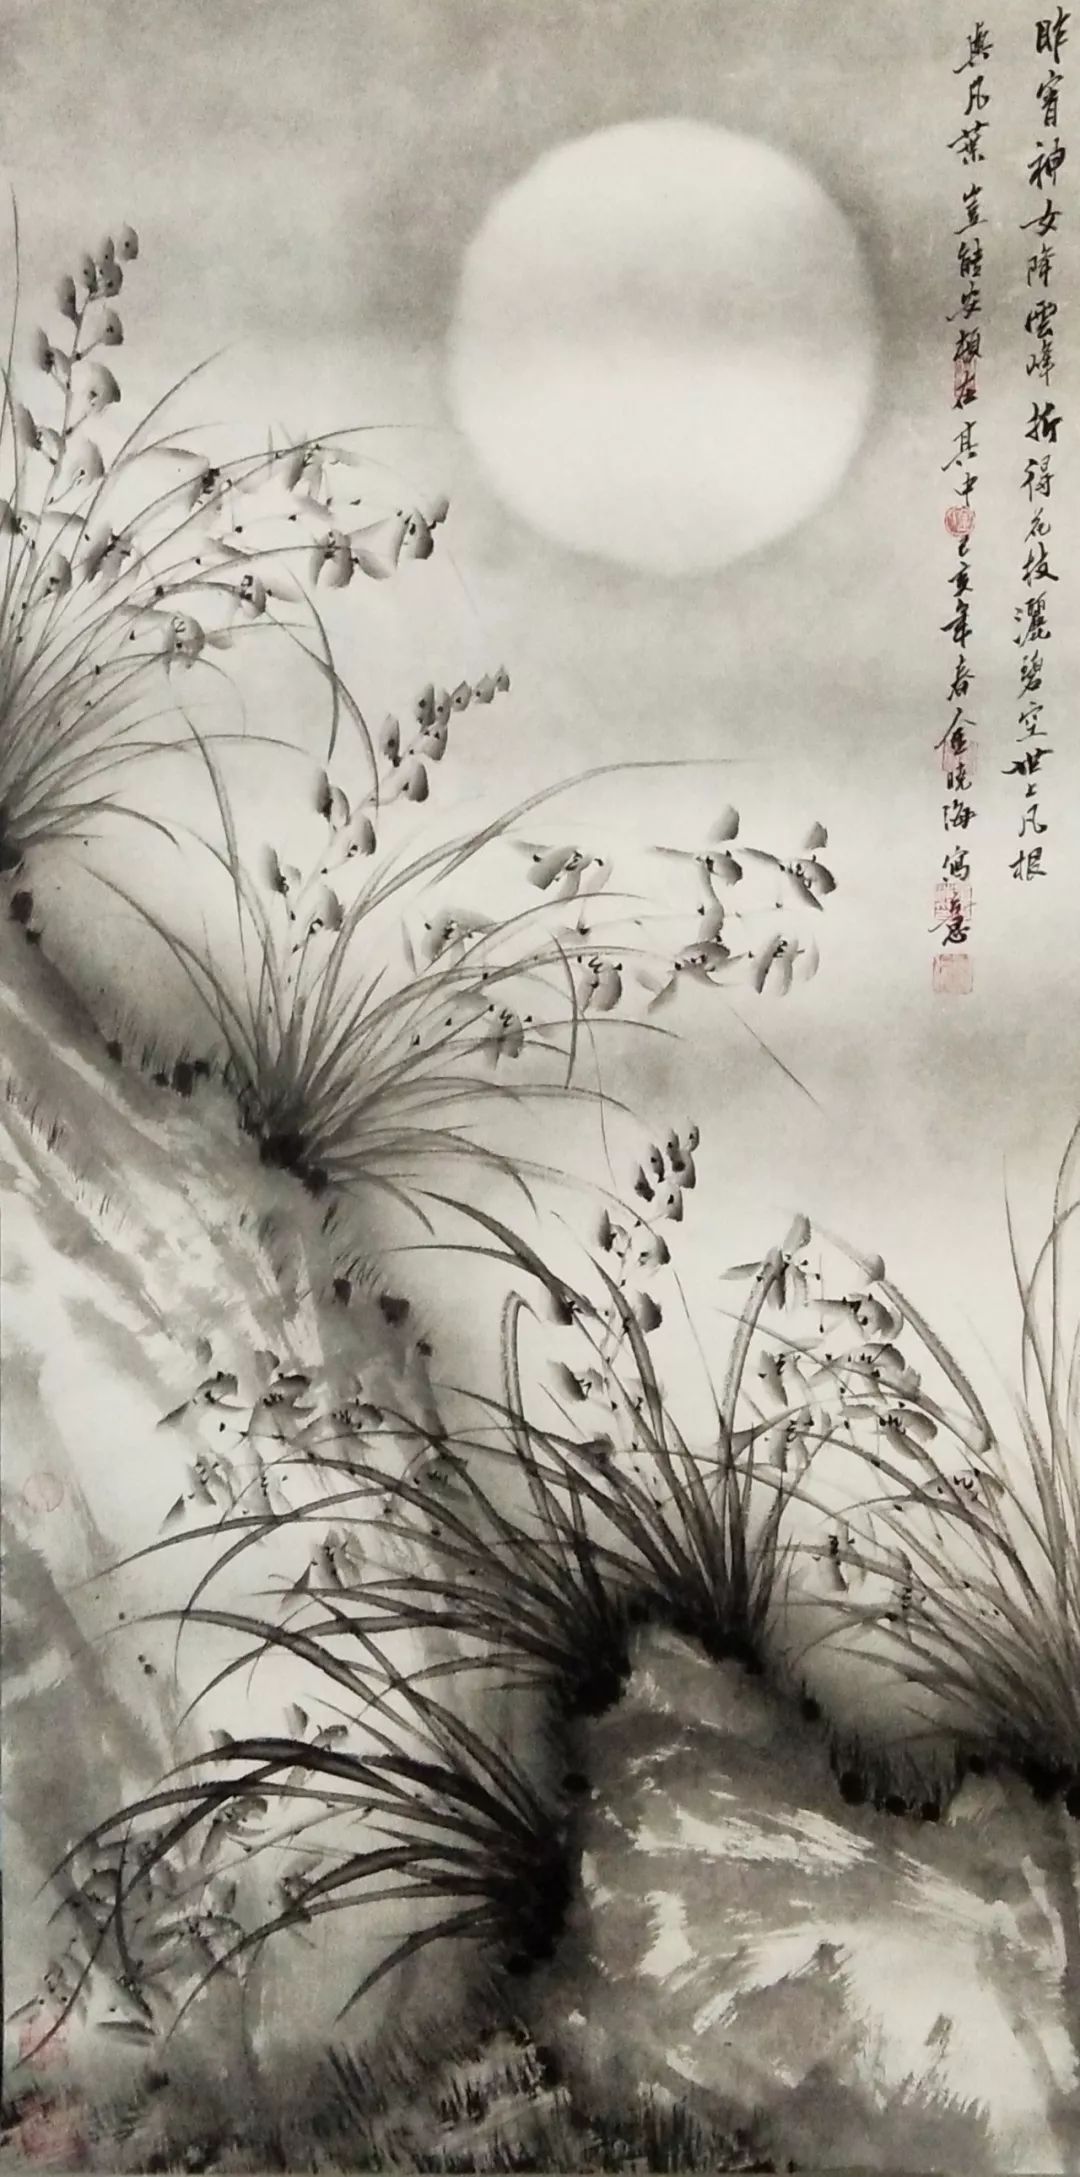 昨宵神女降雲峰折得花枝灑碧空世上凡根
與凡葉豈能安頓在其中己亥年春金曉海寫意